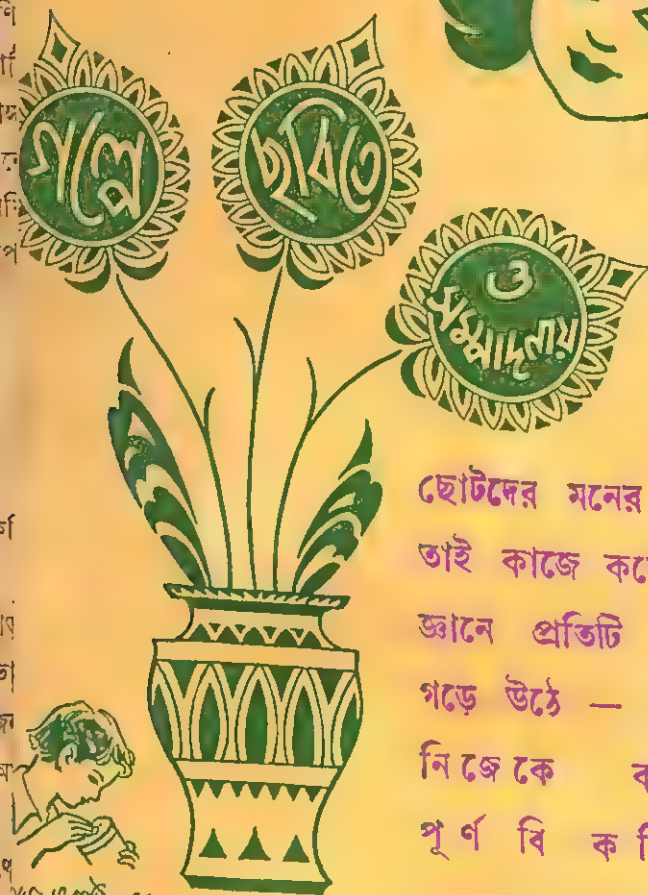 গল্পে
ছবিতে
ও
সম্পাদনায়
ছোটদের মনের
তাই কাজে
জ্ঞানে প্রতিটি
গড়ে উঠে —
নিজেকে
পূর্ণ বি ক